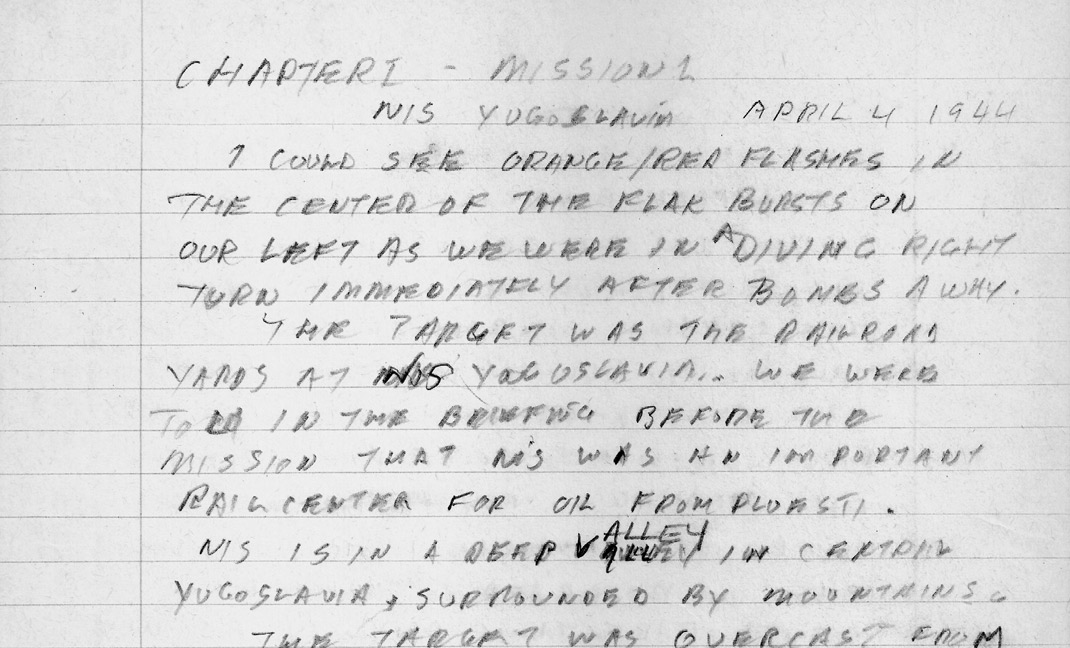 CHAPTER I - MISSION 1
NIS YUGOSLAVIA APRIL 4 1944
I COULD SEE ORANGE/RED FLASHES IN
THE CENTER OF THE FLAK BURSTS ON
OUR LEFT AS WE WERE IN A DIVING RIGHT
TURN IMMEDIATELY AFTER BOMBS AWAY.
THE TARGET WAS THE RAILROAD
YARDS AT NIS YUGOSLAVIA.. WE WERE
TOLD IN THE BRIEFING BEFORE THE
MISSION THAT NIS WAS AN IMPORTANT
RAIL CENTER FOR OIL FROM PLOESTI.
NIS IS IN A DEEP VALLEY IN CENTRAL
YUGOSLAVIA, SURROUNDED BY MOUNTAINS.
THE TARGET WAS OVERCAST FROM